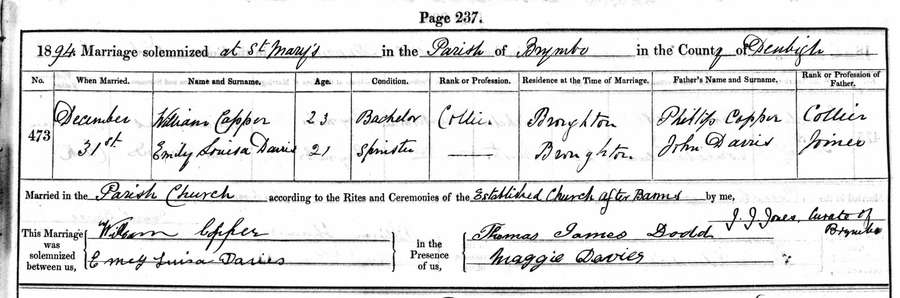 Page 237.
1894. Marriage solemnized at St Mary's in the Parish of Brymbo in the County of Denbigh
No. When Married. Name and Surname. Age. Condition. Rank or Profession. Residence at the Time of Marriage. Father's Name and Surname. Rank or Profession of Father.
473 December 31st
William Copper 23 Bachelor Collier Broughton Phillip Copper Collier
Emily Louisa Davis 21 Spinster —— Broughton John Davis Joiner
Married in the Parish Church according to the Rites and Ceremonies of the Established Church after Banns by me,
J. J. Jones, Curate of Brymbo
This Marriage was solemnized between us, William Copper
Emely Luisa Davies
in the Presence of us, Thomas James Dodd
Maggie Davies